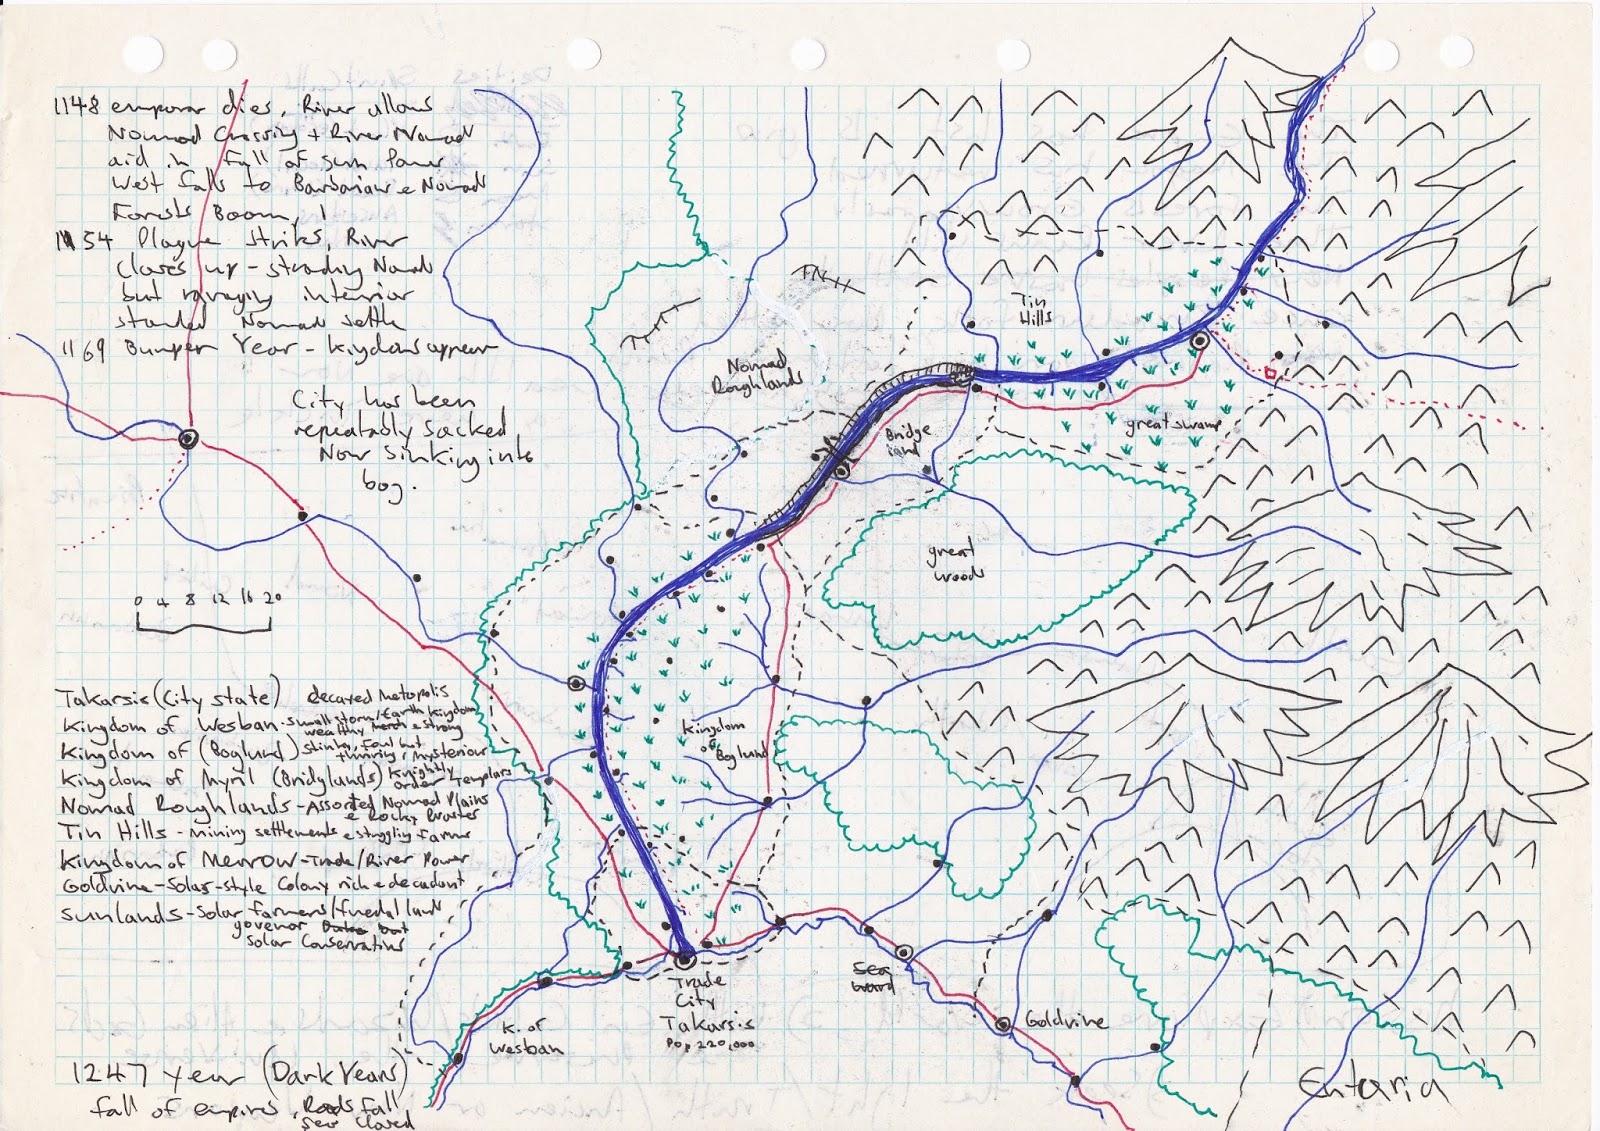 1148 emporor dies, River allows
Nomad Crossing + River Nomad
aid in fall of sun power
West falls to Barbarian & Nomad
Forests Boom,
1154 Plague strikes, River
closes up - stranding Nomads
but ravaging interior
stranded Nomads settle
1169 Bumper Year - kigdoms appear
City has been
repeatably sacked
Now sinking into
bog.
Tin
Hills
Nomad
Roughlands
Bridge
land
great swamp
great
woods
0 4 8 12 16 20
Kingdom
of
Boglund
Takarsis (City state) decayed Metropolis
Kingdom of Wesban - small storm/Earth kingdom
wealthy & strong
Kingdom of (Boglund) stinky, foul but
thriving, Mysterious
Kingdom of Myril (Bridglands) Knightly Templars
order
Nomad Roughlands - Assorted Nomad Plains
& Rocky
Tin Hills - mining settlements & struggling farms
Kingdom of Merrow - Trade/River Power
Goldvine - Solar-style Colony rich & decadant
Sunlands - Solar farmers/fuedal land
govenor but
Solar Conservatives
Trade
City
Takarsis
Pop 220,000
K. of
Wesban
Sea
Goldvine
Entaria
1247 year (Dark Years)
fall of empires, Roads fall
Sea Closed